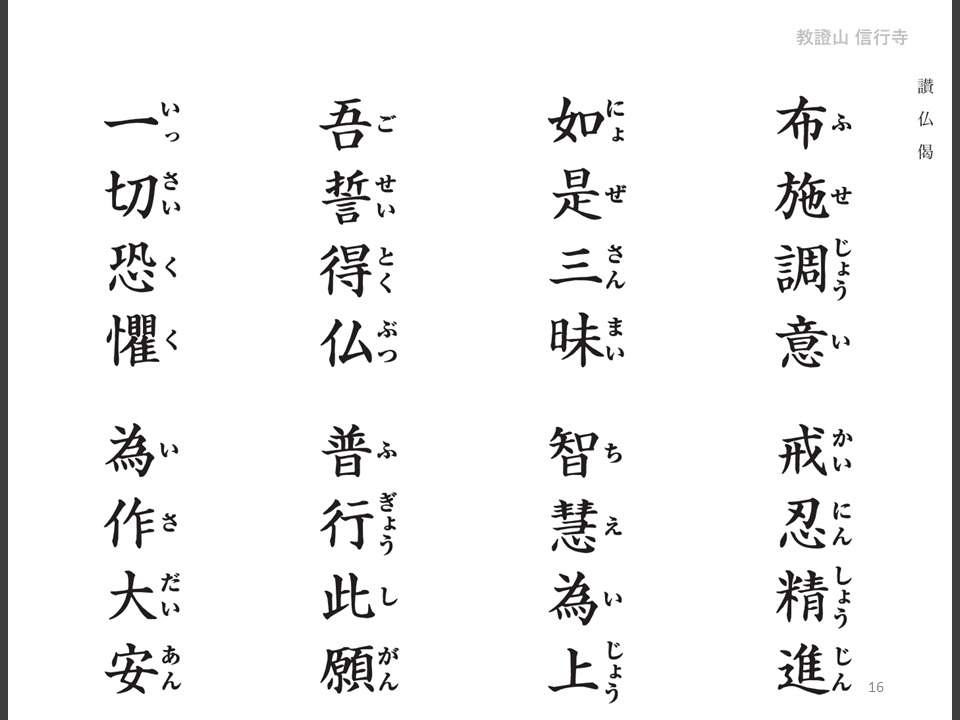 教證山 信行寺
讃仏偈
布施調意 戒忍精進
ふ せ じょう い かい にん しょう じん
如是三昧 智慧為上
にょ ぜ さん まい ち え い じょう
吾誓得仏 普行此願
ご せい とく ぶつ ふ ぎょう し がん
一切恐懼 為作大安
いっ さい く く い さ だい あん
16